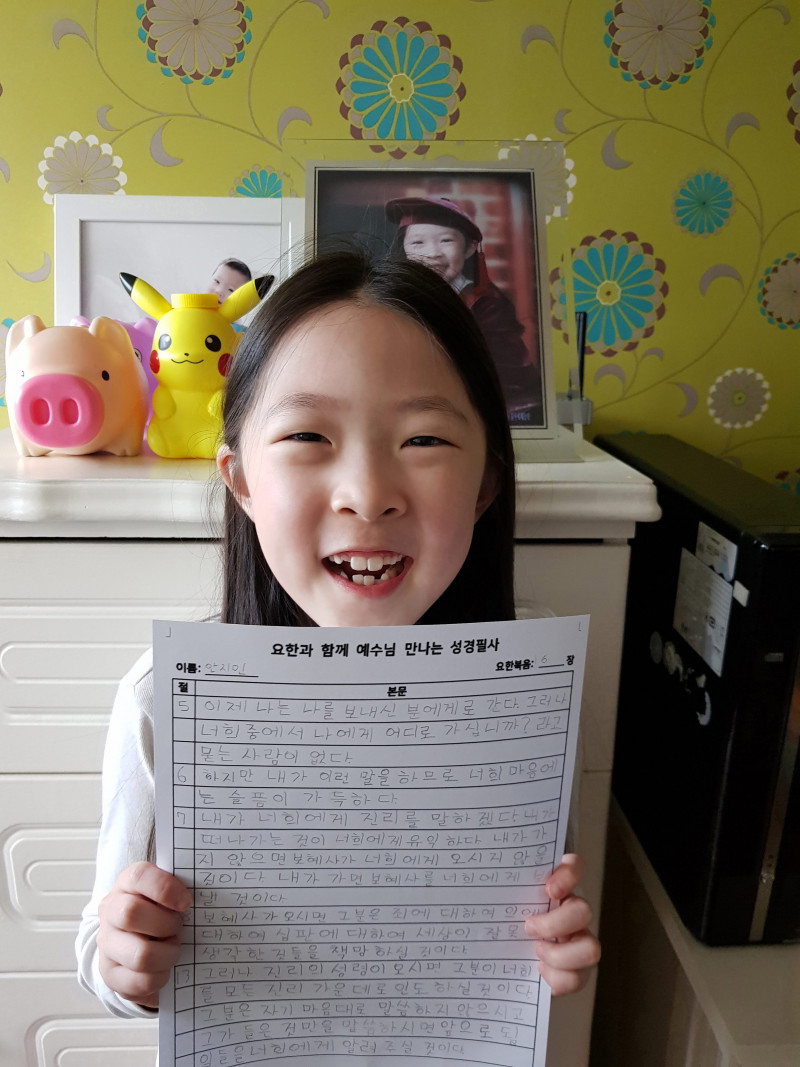 요한과 함께 예수님 만나는 성경필사
이름: 안지인 요한복음: 16 장
절 본문
5 이제 나는 나를 보내신 분에게로 간다. 그러나
너희 중에서 나에게 어디로 가십니까? 라고
묻는 사람이 없다.
6 하지만 내가 이런 말을 하므로 너희 마음에
는 슬픔이 가득하다.
7 내가 너희에게 진리를 말하겠다 내가
떠나가는 것이 너희에게 유익하다. 내가 가
지 않으면 보혜사가 너희에게 오시지 않을
것이다. 내가 가면 보혜사를 너희에게 보
낼 것이다
8 보혜사가 오시면 그분은 죄에 대하여 의에
대하여 심판에 대하여 세상의 잘못
생각한 것들을 책망하실 것이다
13 그러나 진리의 성령이 오시면 그분이 너희
를 모든 진리 가운데로 인도하실 것이다
그분은 자기 마음대로 말씀하지 않으시고
그가 들은 것만을 말씀하시며 앞으로 될
일들을 너희에게 알려 주실 것이다